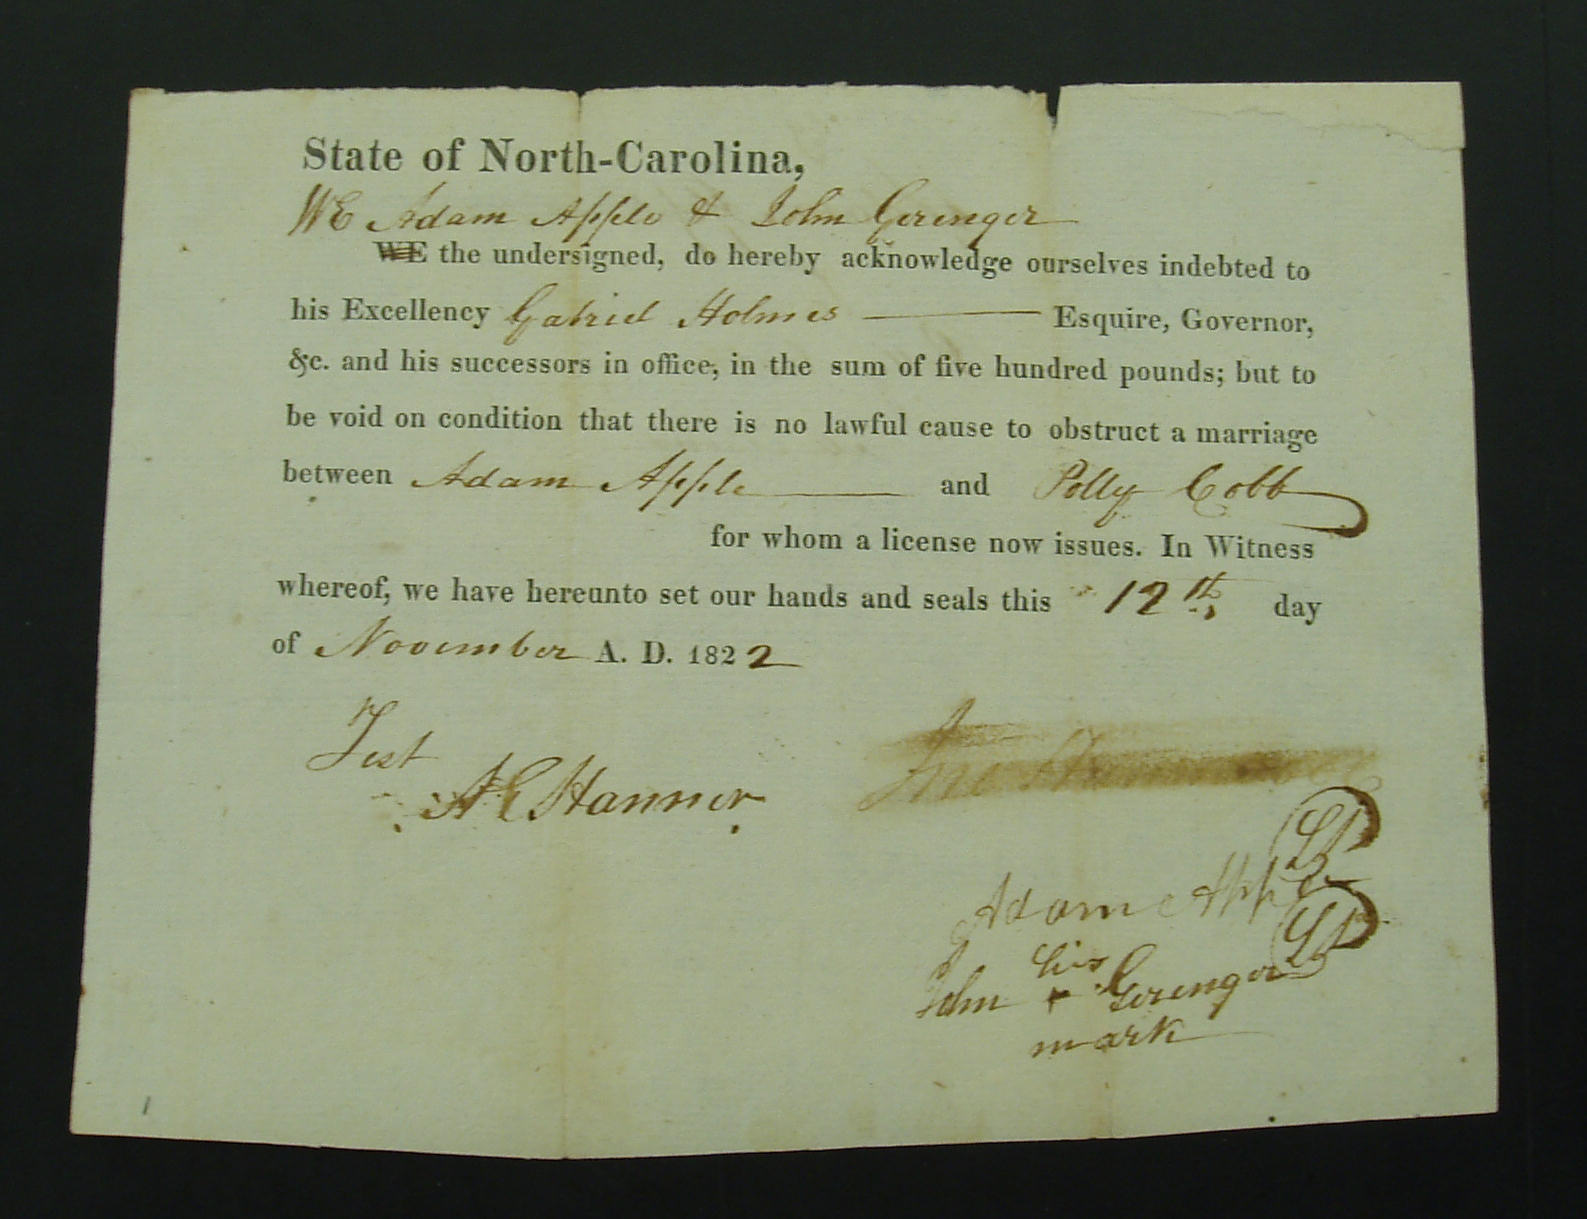 State of North-Carolina,
WE Adam Apple & John Gerenger
WE the undersigned, do hereby acknowledge ourselves indebted to
his Excellency Gabriel Holmes Esquire, Governor,
&c. and his successors in office, in the sum of five hundred pounds; but to
be void on condition that there is no lawful cause to obstruct a marriage
between Adam Apple and Polly Cobb
for whom a license now issues. In Witness
whereof, we have hereunto set our hands and seals this 12th day
of November A. D. 1822
Test
A E Hanner
Adam Apple LS
his
John + Gerenger LS
mark